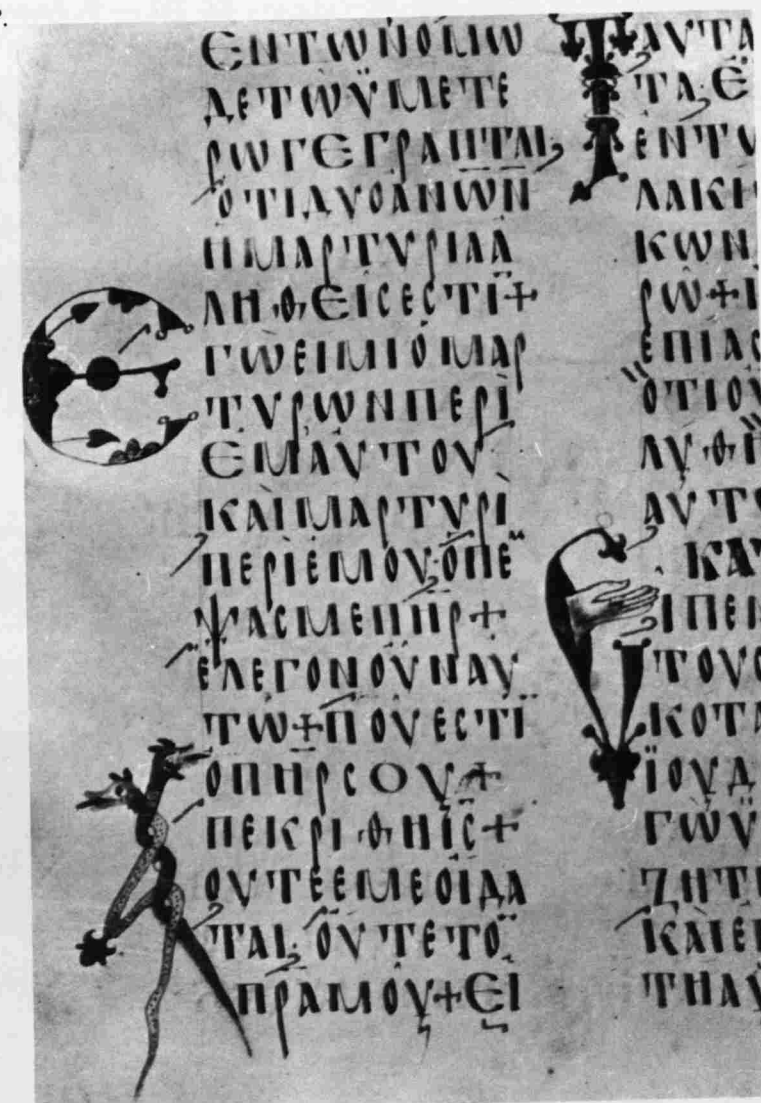 ΕΝΤΩΝΟΜΩ
ΔΕΤΩΫΜΕΤΕ
ΡΩΓΕΓΡΑΠΤΑΙ,
ΟΤΙΔΥΟΑΝΩΝ
ΗΜΑΡΤΥΡΙΑΑ
ΛΗΘΕΙCΕCΤΙ+
ΕΓΩΕΙΜΙΟΜΑΡ
ΤΥΡΩΝΠΕΡΙ
ΕΜΑΥΤΟΥ
ΚΑΙΜΑΡΤΥΡΙ
ΠΕΡΙΕΜΟΥ·ΟΠΕ
ΨΑCΜΕΠΗΡ+
ΕΛΕΓΟΝΟΥΝΑΥ
ΤΩ+ΠΟΥΕCΤΙ
ΟΠΗΡCΟΥ+
ΑΠΕΚΡΙΘΗΙC+
ΟΥΤΕΕΜΕΟΙΔΑ
ΤΑΙ·ΟΥΤΕΤΟ
ΠΡΑΜΟΥ+ΕΙ
ΤΑΥΤΑ
ΤΑ·Ε
ΕΝΤ
ΛΑΚ
ΚΩΝ
ΡΩ+
ΕΠΙΑC
ΟΤΙΟΥ
ΛΥΘΗ
ΑΥΤ
ΚΑ
ΕΙΠΕ
ΤΟΥ
ΚΟΤΑ
ΪΟΥΔ
ΓΩΫ
ΖΗΤ
ΚΑΙΕ
ΤΗΑΥ